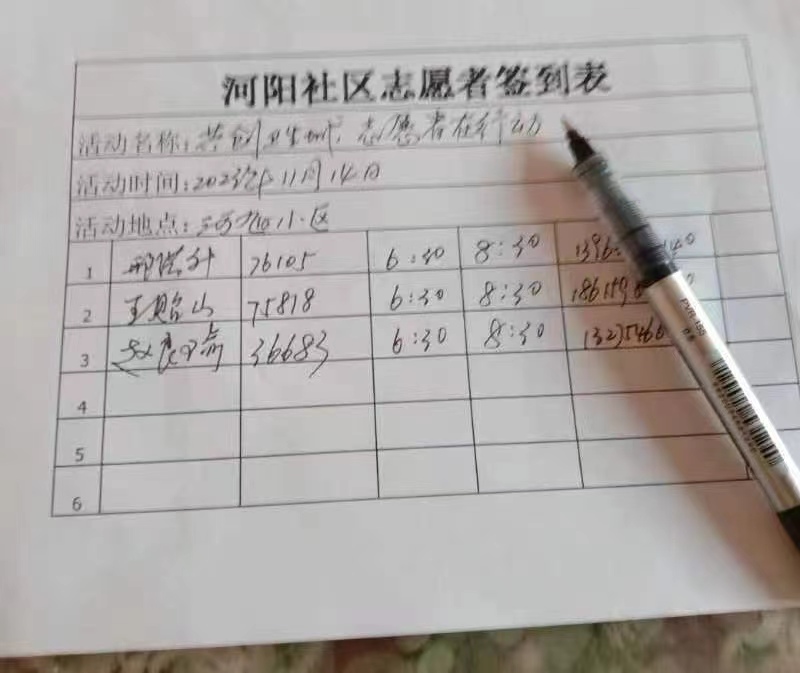 河阳社区志愿者签到表
活动名称：共创卫生城，志愿者在行动
活动时间：2023年11月14日
活动地点：小区
1 76105 6:30 8:30 1396
2 王贻山 75818 6:30 8:30
3 36683 6:30 8:30 1323546
4
5
6
PVR-155
0.5